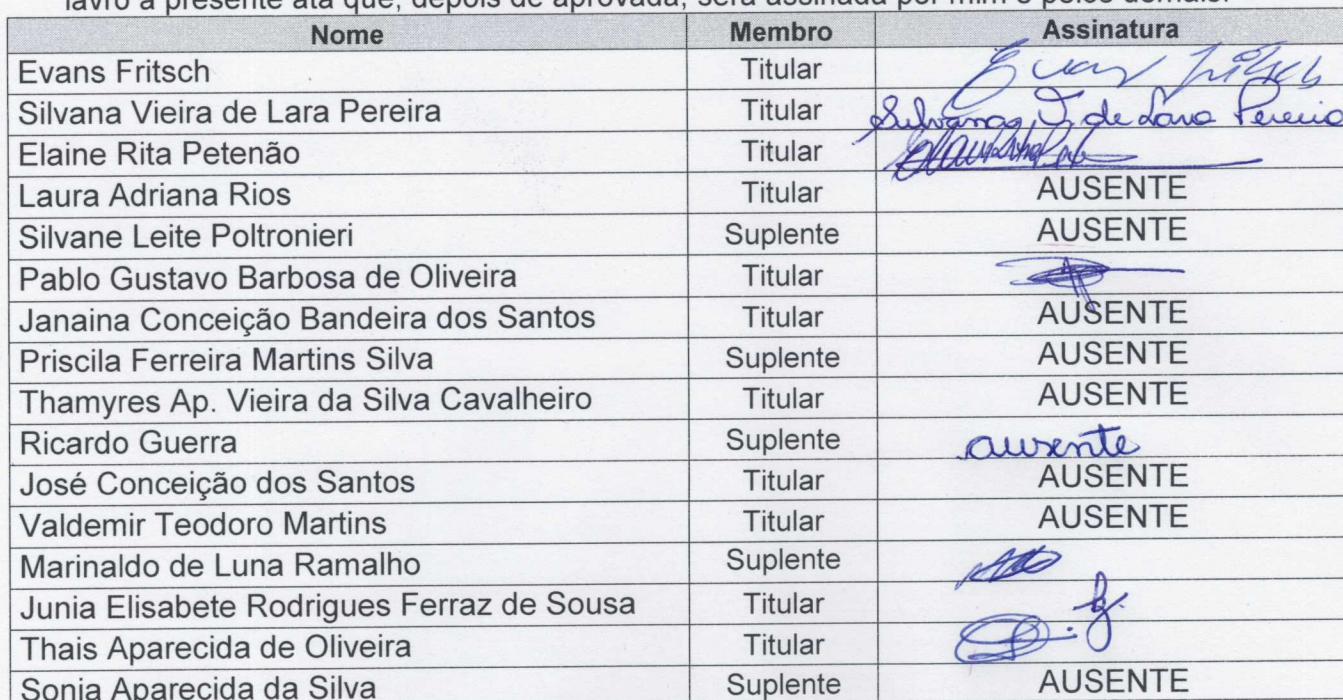 lavro a presente ata que, depois de aprovada, será assinada por mim e pelos demais.
Nome Membro Assinatura
Evans Fritsch Titular Evans Fritsch
Silvana Vieira de Lara Pereira Titular Silvana V. de Lara Pereira
Elaine Rita Petenão Titular
Laura Adriana Rios Titular AUSENTE
Silvane Leite Poltronieri Suplente AUSENTE
Pablo Gustavo Barbosa de Oliveira Titular
Janaina Conceição Bandeira dos Santos Titular AUSENTE
Priscila Ferreira Martins Silva Suplente AUSENTE
Thamyres Ap. Vieira da Silva Cavalheiro Titular AUSENTE
Ricardo Guerra Suplente ausente
José Conceição dos Santos Titular AUSENTE
Valdemir Teodoro Martins Titular AUSENTE
Marinaldo de Luna Ramalho Suplente
Junia Elisabete Rodrigues Ferraz de Sousa Titular
Thais Aparecida de Oliveira Titular
Sonia Aparecida da Silva Suplente AUSENTE